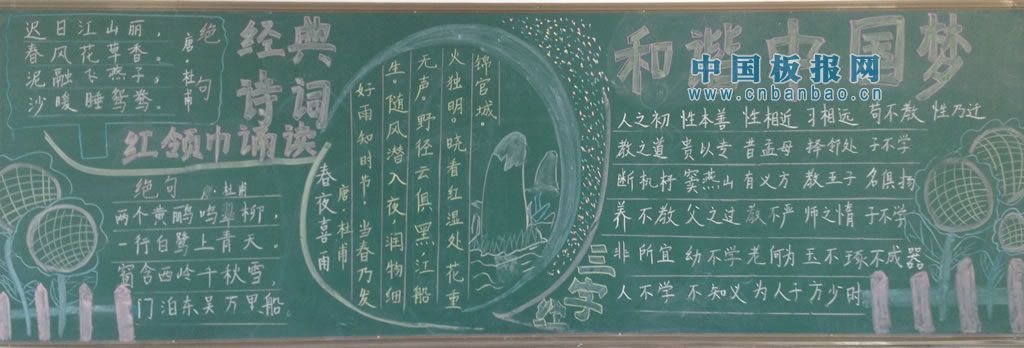 迟日江山丽，
春风花草香。
泥融飞燕子，
沙暖睡鸳鸯。
绝句
唐·杜甫
经典
诗词
红领巾诵读
绝句 杜甫
两个黄鹂鸣翠柳，
一行白鹭上青天。
窗含西岭千秋雪，
门泊东吴万里船。
春夜喜雨
唐·杜甫
好雨知时节，当春乃发
生，随风潜入夜，润物细
无声。野径云俱黑，江船
火独明。晓看红湿处，花重
锦官城。
三字经
和谐中国梦
中国板报网
www.cnbanbao.cn
人之初 性本善 性相近 习相远 苟不教 性乃迁
教之道 贵以专 昔孟母 择邻处 子不学
断机杼 窦燕山 有义方 教五子 名俱扬
养不教 父之过 教不严 师之情 子不学
非所宜 幼不学 老何为 玉不琢 不成器
人不学 不知义 为人子 方少时